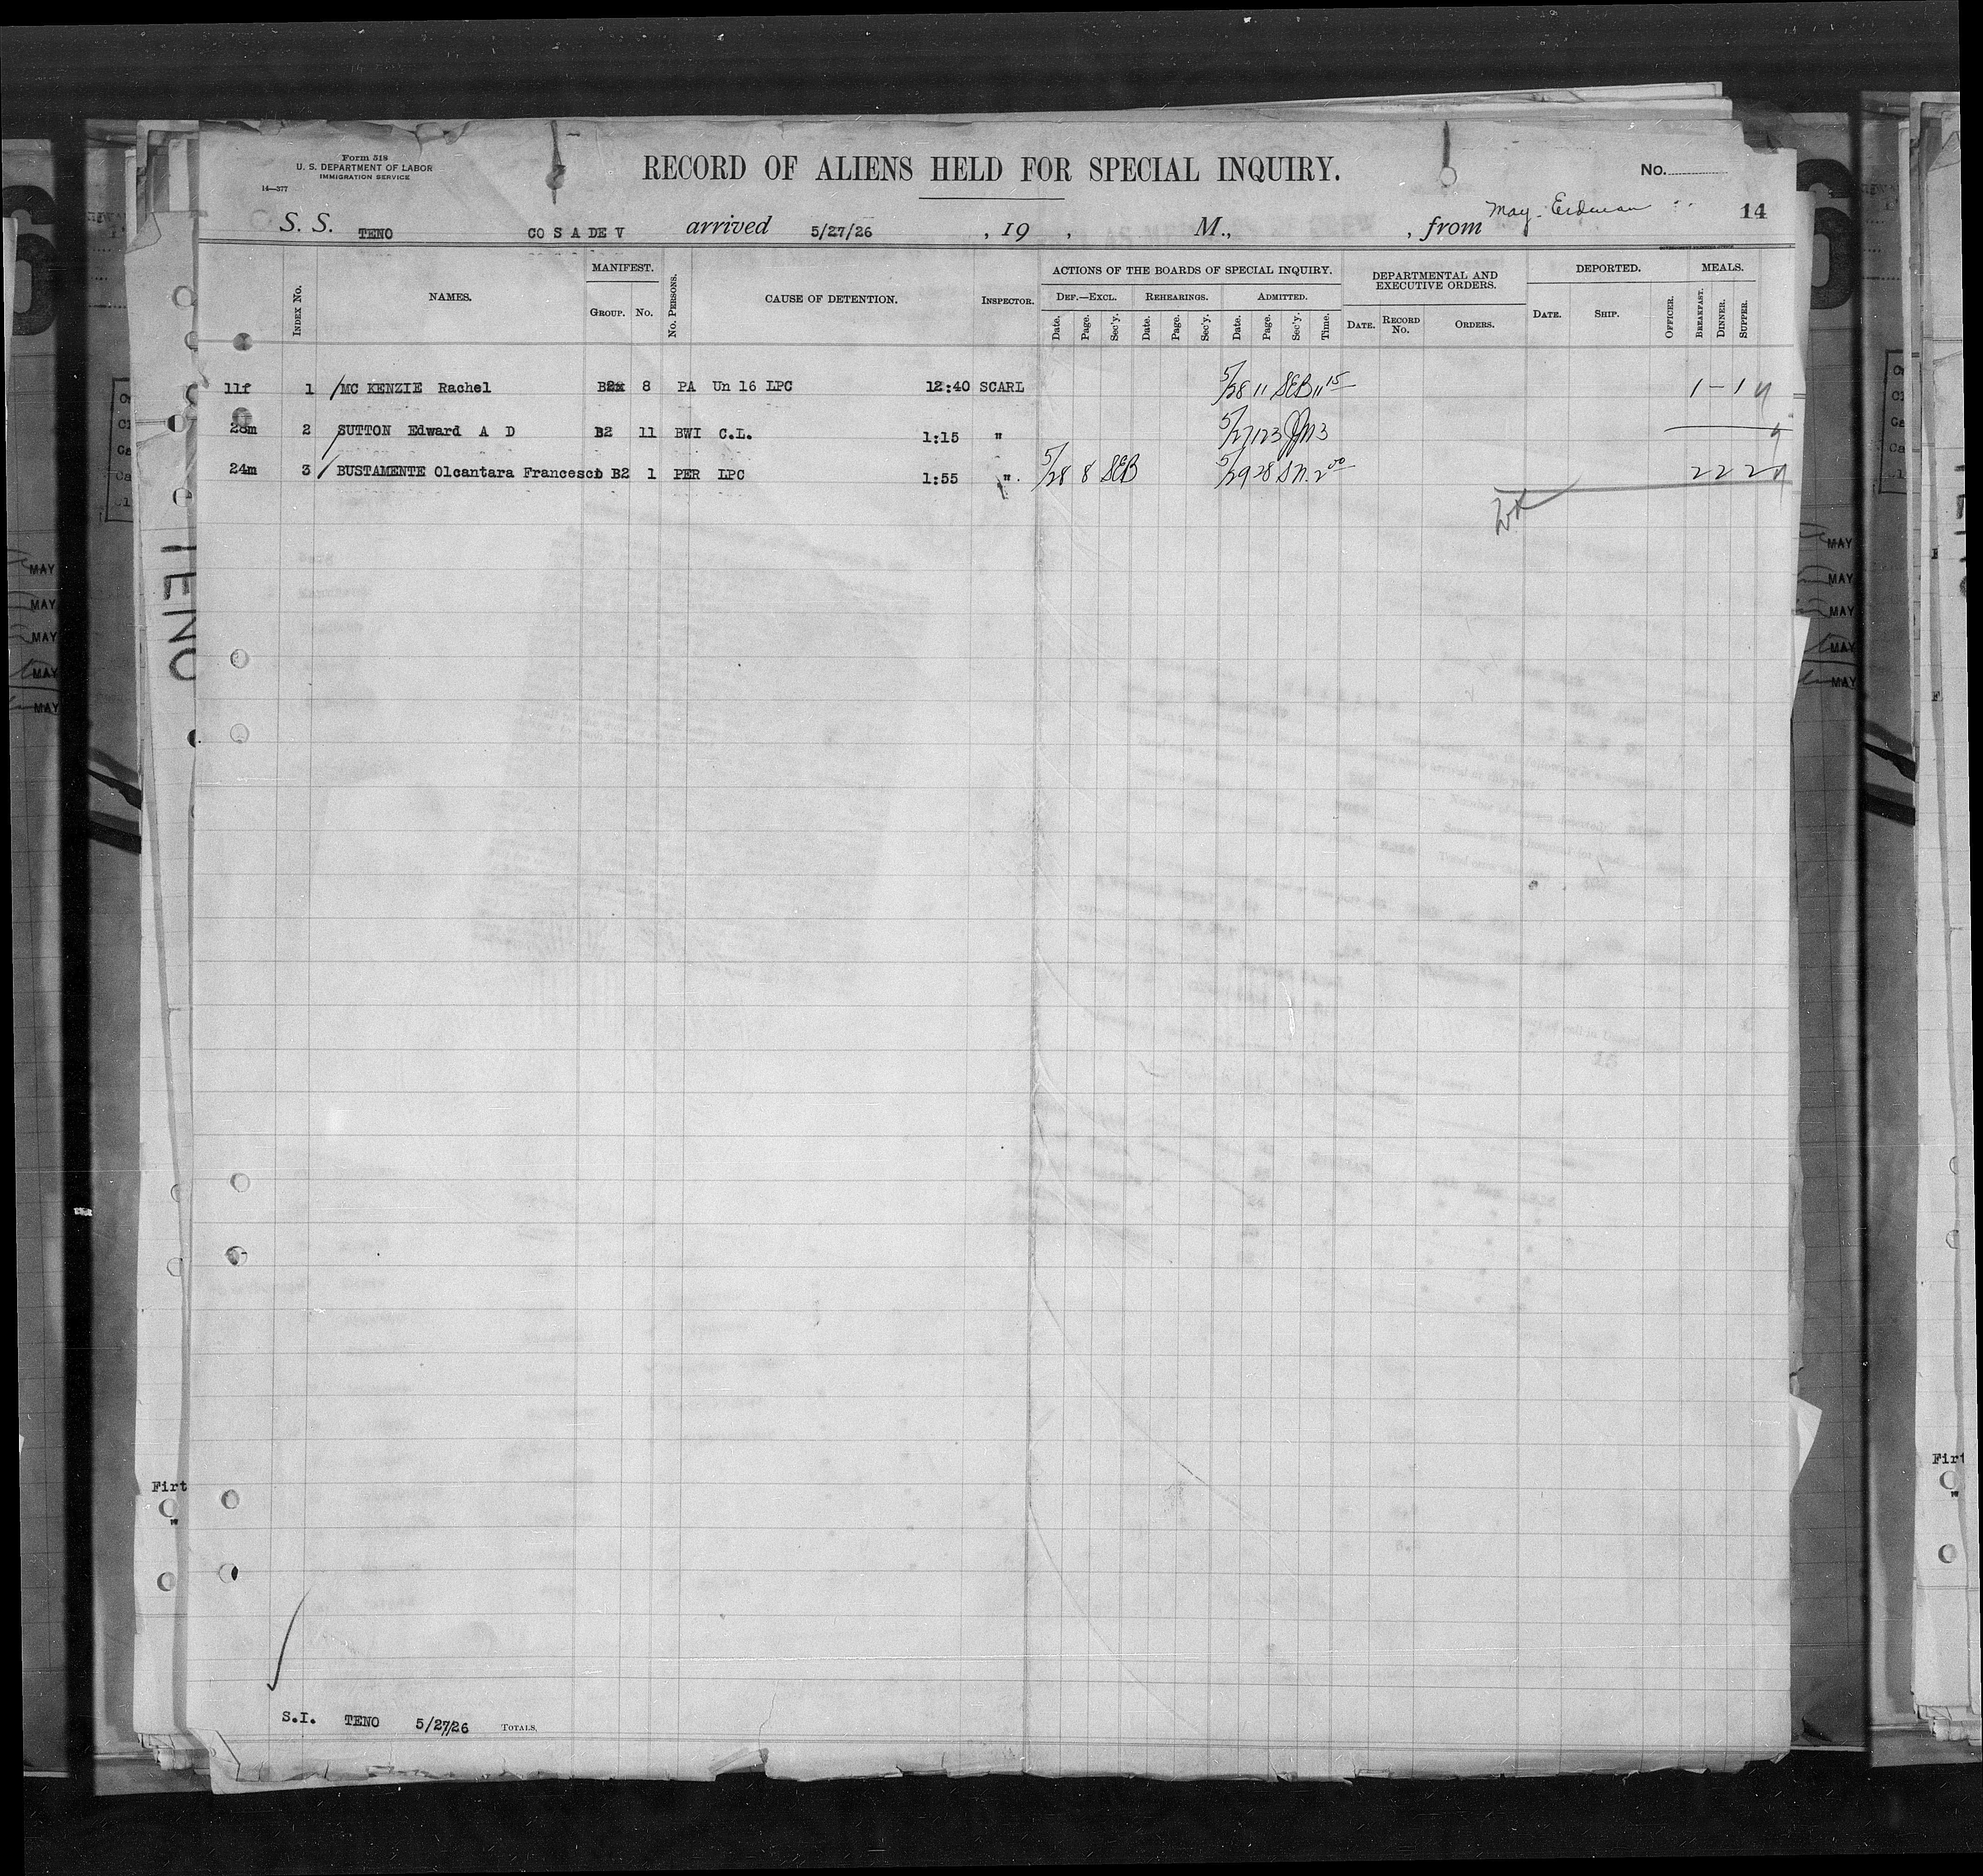 Form 518
U. S. DEPARTMENT OF LABOR
IMMIGRATION SERVICE
14—377
RECORD OF ALIENS HELD FOR SPECIAL INQUIRY.
No.
S. S. TENO CO S A DE V arrived 5/27/26 , 19 , M., , from May. Erdman 14
INDEX No. NAMES. MANIFEST. GROUP. No. No. PERSONS. CAUSE OF DETENTION. INSPECTOR.
ACTIONS OF THE BOARDS OF SPECIAL INQUIRY. DEF.—EXCL. REHEARINGS. ADMITTED.
Date. Page. Sec'y. Date. Page. Sec'y. Date. Page. Sec'y. Time.
DEPARTMENTAL AND EXECUTIVE ORDERS. DATE. RECORD No. ORDERS.
DEPORTED. DATE. SHIP. OFFICER. MEALS. BREAKFAST. DINNER. SUPPER.
11f 1 MC KENZIE Rachel B2x 8 PA Un 16 LPC 12:40 SCARL 5/28 11 SEB 11 15 1 – 1
28m 2 SUTTON Edward A D B2 11 BWI C.L. 1:15 " 5/27 123 3
24m 3 BUSTAMENTE Olcantara Francesco B2 1 PER LPC 1:55 " 5/28 8 SEB 5/29 28 S N. 2 00 2 2 2
S.I. TENO 5/27/26 TOTALS.
TENO
MAY
MAY
MAY
MAY
MAY
Firt
"